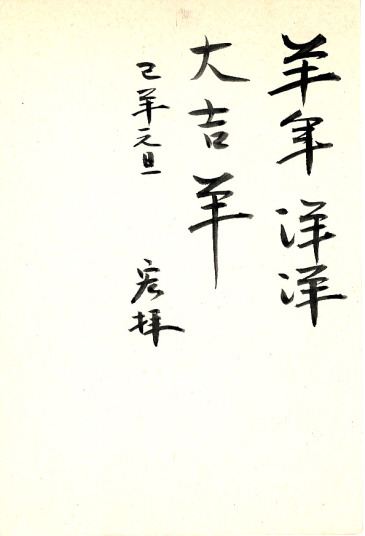 羊年洋洋
大吉羊
己羊元旦 宏拜